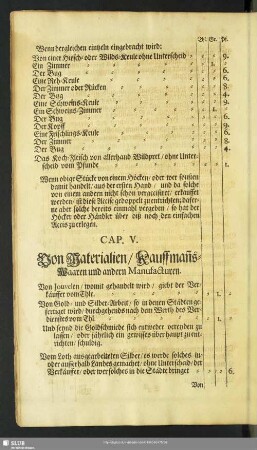 Rt. Gr. Pf.
Wenn dergleichen eintzeln eingebracht wird:
Von einer Hirsch- oder Wilds-Keule ohne Unterscheid 9.
Ein Zimmer 1.
Der Bug 6.
Eine Reh-Keule 6.
Der Zimmer oder Rücken 8.
Der Bug 4.
Eine Schweins-Keule 9.
Ein Schweins-Zimmer 1.
Der Bug 6.
Der Kopff 9.
Eine Frischlings-Keule 6.
Der Zimmer 8.
Der Bug 4.
Das Koch-Fleisch von allerhand Wildpret / ohne Unter-
scheid vom Pfunde 1.
Wenn obige Stücke von einem Höcken / oder wer sonsten
damit handelt / aus der ersten Hand / und da solche
von einem andern noch nicht vergeacciset / erkauffet
werden: ist diese Accise gedoppelt zu entrichten; dafer-
ne aber solche bereits einmahl vergeben / so hat der
Höcker oder Händler über diß noch den einfachen
Accis zu erlegen.
CAP. V.
Von Materialien / Kauffmañs-
Waaren und andern Manufacturen.
Von Jouvelen / womit gehandelt wird / giebt der Ver-
käuffer vom Thlr. 1.
Von Gold- und Silber-Arbeit / so in denen Städten ge-
fertiget wird / durchgehends nach dem Werth des Ver-
dienstes vom Thl. 1.
Und seynd die Goldschmiede sich entweder vereyden zu
lassen / oder jährlich ein gewisses überhaupt zu ent-
richten / schuldig.
Vom Loth ausgearbeiteten Silber / es werde solches in-
oder ausserhalb Landes gemachet / ohne Unterscheid / der
Verkäuffer / oder wer solches in die Städte bringet 6.
Von
SLUB